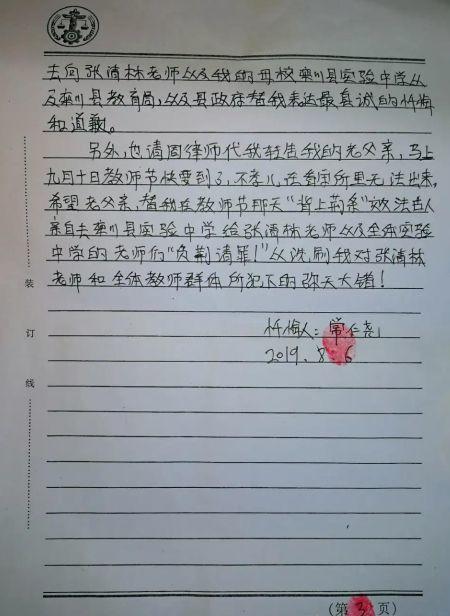 去向张清林老师以及我的母校栾川县实验中学以
及栾川县教育局,以及县政府替我表达最真诚的忏悔
和道歉。
另外,也请同律师代我转告我的老父亲,马上
九月十日教师节快要到了,不孝儿在看守所里无法出来,
希望老父亲,替我在教师节那天"背上荆条"效法古人
亲自去栾川县实验中学给张清林老师以及全体实验
中学的老师们"负荆请罪!"以洗刷我对张清林
老师和全体教师群体所犯下的弥天大错!
忏悔人:常仁尧
2019.8.6
装
订
线
(第3页)